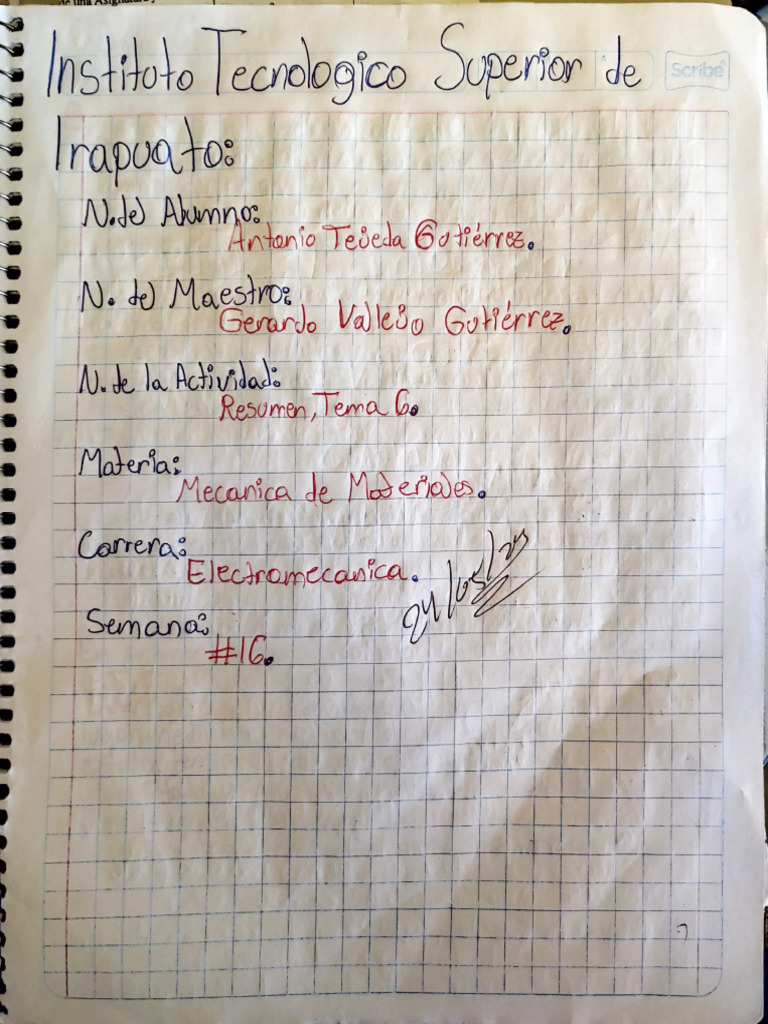 Instituto Tecnologico Superior de
Scribe
Irapuato:
N. del Alumno:
Antonio Tejeda Gutiérrez.
N. del Maestro:
Gerardo Vallejo Gutiérrez.
N. de la Actividad:
Resumen, Tema 6.
Materia:
Mecanica de Materiales.
Carrera:
Electromecanica.
Semana:
#16.